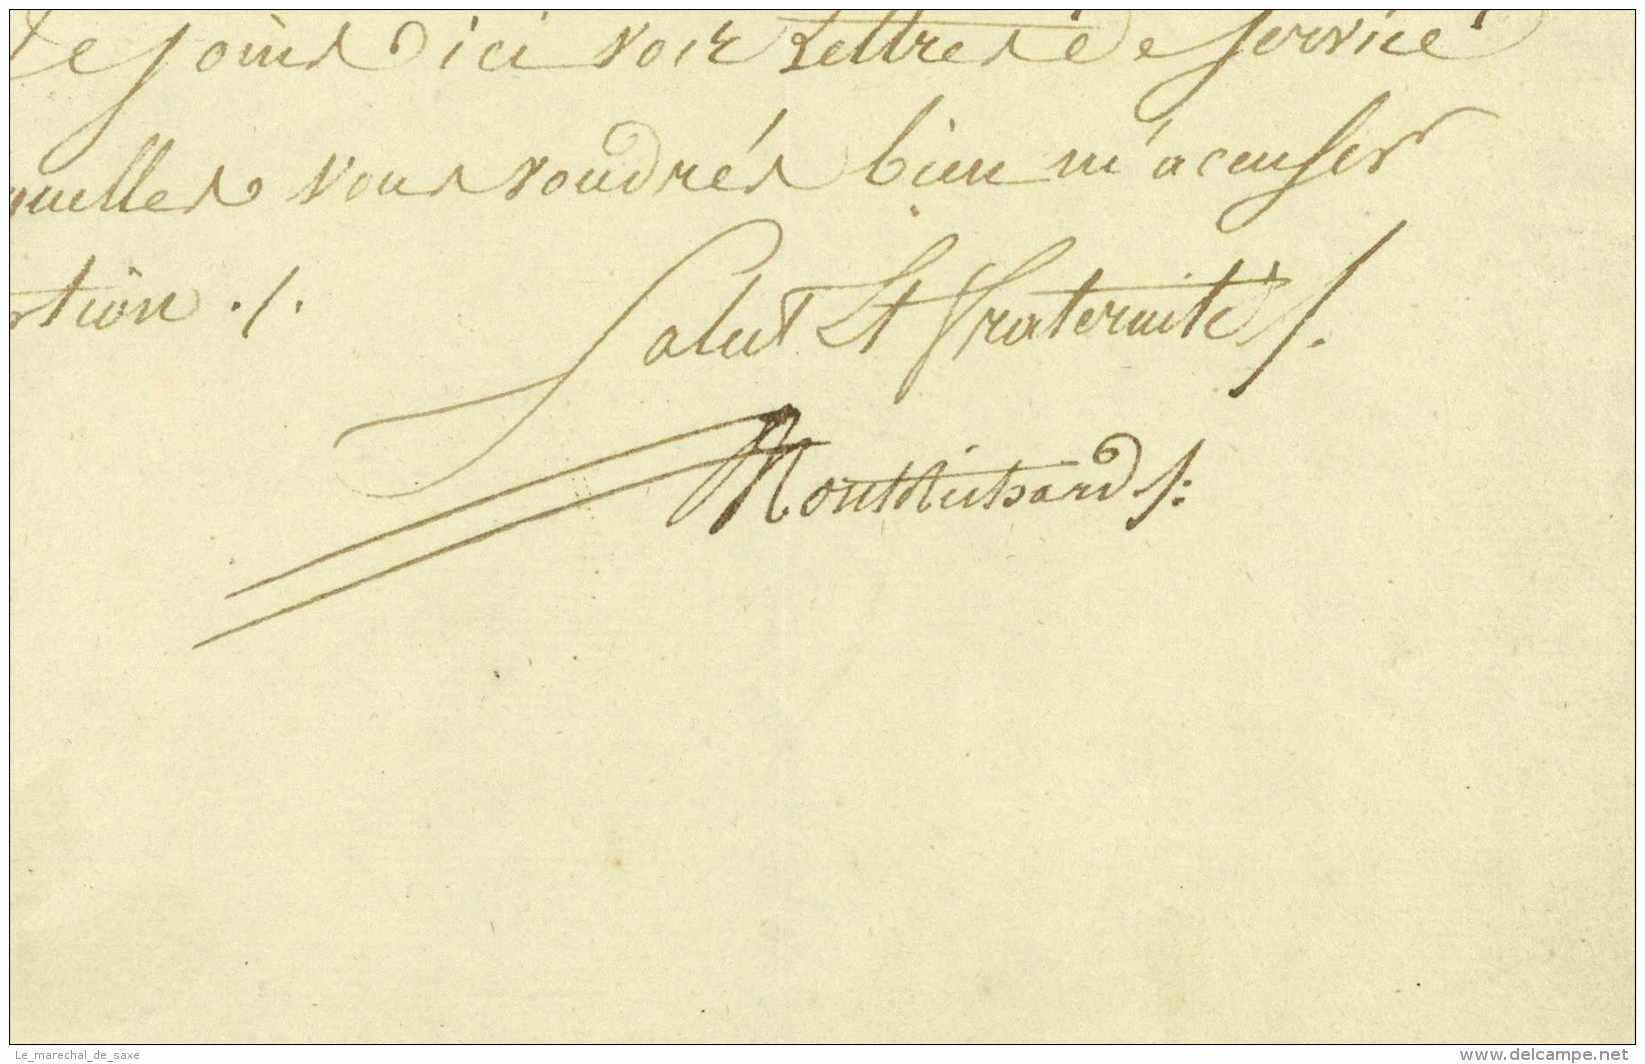 Je joins d'ici vos Lettres de Service
quelles vous voudrés bien m'accuser
tion ./.
Salut Et Fraternité /.
Montrichard /:
Le_marechal_de_saxe
www.delcampe.net